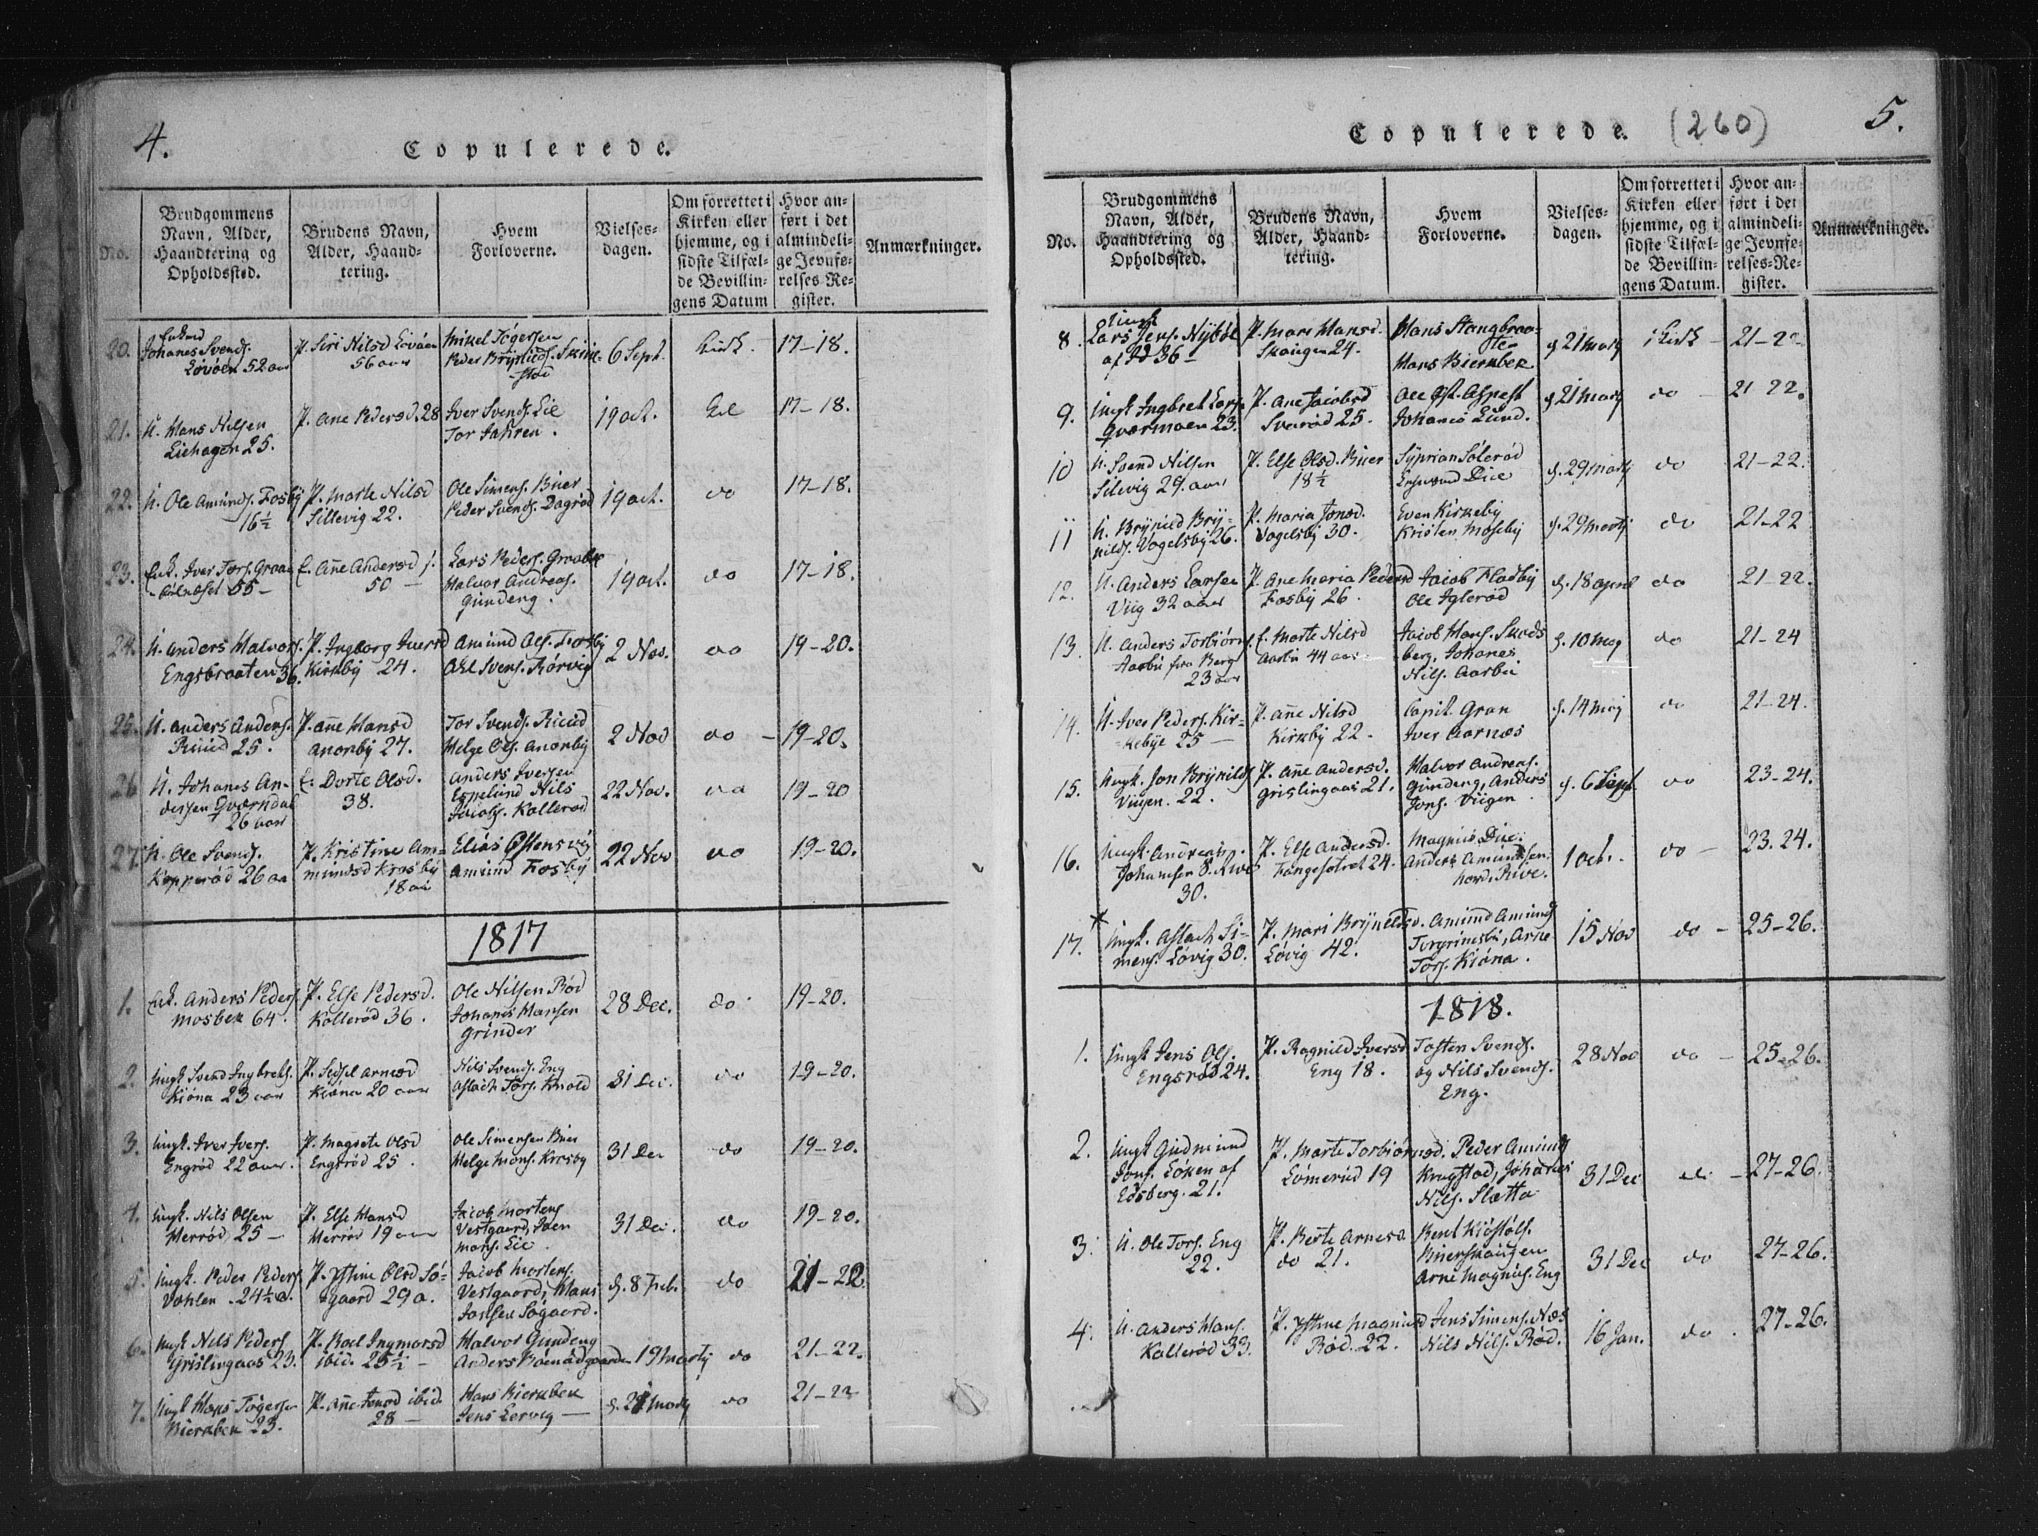 4.
Copulerede.
No.
Brudgommens Navn, Alder, Haandtering og Opholdssted.
Brudens Navn, Alder, Haandtering.
Hvem Forloverne.
Vielsesdagen.
Om forrettet i Kirken eller hjemme, og i sidste Tilfælde Bevillingens Datum
Hvor anført i det almindelige Jevnførelses-Register.
Anmærkninger.
20. Enkmd Johanes Svends. Lövöen 52 aar
P. Siri Nilsd Lövöen 56 aar
Mikel Tögersen
Peder Brynilds. Skiklestad
6 Sept.
kirk.
17-18.
21. U. Hans Nilsen
Liehagen 25.
P. Ane Pedersd. 28
Iver Svends. Lie
Tor Jahren.
19 oct.
17-18.
22. U. Ole Amunds. Fosby
16½
P. Marte Nilsd
Sillevig 22.
Ole Simens. Buer
Peder Svends. Dagröd
19 oct.
do
17-18.
23. Enk. Iver Tors. Graa-
55 -
E. Añe Andersd
50 -
Lars Peders.
Halvor Andreas.
Gundeng.
19 oct.
do
17-18.
24. U. Anders Halvors.
Engebraaten 36.
P. Ingborg Iversd
Kirkeby 24.
Amund Ols. Fosby
Svens. Rörvig
2 Nov.
do
19-20.
25. U. Anders Anders.
Ruud 25.
P. Añe Hansd
Anonby 27.
Tor Svends. Ruud
Helge Ols. Anonby
2 Nov
do
19-20.
26 U. Johanes An-
dersen Qværndal
26 aar
E. Dorte Olsd.
38.
Anders Iversen
Espelund Nils
Jacobs. Kollerød
22 Nov.
do
19-20
27. U. Ole Svends.
Kopperöd 26 aa
P. Kristine Am-
mundsd Krosby
18 aa
Elias Östensvig
Amund Fosby
22 Nov
do
19-20.
1817
1. Enk. Anders Peders.
Mosbek 64.
P. Else Pedersd.
Kollerød 36.
Ole Nilsen Röd
Johanes Hansen
Grinder
28 Dec.
do.
19-20.
2. Ungk Svend Ingbrets.
Kiöna 23 aar
P. Sidsel Arnesd
Kiöna 20 aar
Nils Svends. Eng
Aslach Tors. Knold
31 Dec.
do
19-20.
3. Ungk. Iver Ivers.
Engröd 22 aar.
P. Magrete Olsd
Engsröd 25.
Ole Simensen Buer
Helge Mons. Krosby
31 Dec
do
19-20.
4. Ungk. Nils Olsen
Herröd 25 -
P. Else Hansd
Herröd 19 aar
Jacob Mortens.
Vestgaard,
Hans. Lie.
31 Dec.
do
19-20.
5. Ungk. Peder Peders
Vahlen. 24½ a.
P. Ystine Olsd Sö-
gaard 29 a.
Jacob Mortens.
Vestgaard, Hans
Jonsen Sögaard.
d. 8 Feb.
do
21-22.
6. Ungk Nils Peders.
Grislingaas 23.
P. Rael Ingmarsd
ibid. 25½ -
Halvor Gundeng
Anders
19 Martij
do
21-22.
7. Ungk Hans Tögersen
Bierkbek 23.
P. Añe Jensd ibid.
28 -
Hans Bierkbek
Jens Lervig -
d. 21 Martij
do
21-22
Copulerede. (260)
5.
No.
Brudgommens Navn, Alder, Haandtering og Opholdssted.
Brudens Navn, Alder, Haandtering.
Hvem Forloverne.
Vielsesdagen.
Om forrettet i Kirken eller hjemme, og i sidste Tilfælde Bevillingens Datum.
Hvor anført i det almindelige Jevnførelses-Register.
Anmærkninger.
8. Ungk Lars Jens. Nyböl
af Id 36 -
P. Mari Hansd.
Skougen 24.
Hans Stangbraa-
te
Hans Bierkbek
d 21 Martij
i Kirk -
21-22
9. Ungk Ingbret Lars.
Qværnmoen 23.
P. Ane Jacobsd
Svaröd 25.
Ole Ost. Aspest
Johanes Lund.
d 21 Martij
do -
21-22.
10 U. Svend Nilsen
Silevig 29 aar
P. Else Olsd. Buer
18½
Syprian Sölerød
Due
d. 29 Martij
do
21-22.
11 U. Brynild Bry-
nilds. Vogelsby 26.
P. Maria Jonsd.
Vogelsby 30.
Even Kirkeby
Kristen Moseby
d. 29 Martij
do
21-22
12. U. Anders Larsen
Viig 32 aar
P. Ane Maria Pedersd
Fosby 26.
Jacob Fladby
Ole Igleröd
d. 18 April
do
21-22.
13. U. Anders Torbjörns.
Aarbu fra Berg
23 aar
E. Marte Nilsd
Aarbu 44 aar
Jacob Hans. Skods
berg, Johanes
Nils. Aarbu
d. 10 Maj
do
21-24
14. U. Iver Peders. Kir-
kebye 25 -
P. Añe Nilsd
Kirkeby 22.
Capit. Gran
Iver Aarnæs
d. 14 Maj
do
21-24.
15. Ungk. Jon Brynilds
Viigen. 22.
P. Añe Andersd.
Grislingaas 21.
Halvor Andreas.
Gundeng, Anders
Jons. Viigen.
d. 6 Sept.
do
23-24.
16. Ungk. Andreas
Johansen Rive
30.
P. Else Andersd.
Fangesetret 24.
Magnus Due.
Anders Amundsen
nord. Rive.
1 oct.
do -
23.24.
17. Ungk. Aslach Si-
mens. Lövig 30.
P. Mari Brynildsd.
Lövig 42.
Amund Amunds
Torgrimsbu, Arne
Tors. Kiöna.
15 Nov
do -
25-26.
1818.
1. Ungk Jens Ols.
Engsröd 24.
P. Ragnild Iversd
Eng 18.
Tosten Svends.
og Nils Svends.
Eng.
28 Nov
do -
25-26.
2. Ungk Gudmund
Jons. Löken af
Edsberg. 21.
P. Marte Torbiörnsd.
Lömerud 19
Peder Amunds
Krogstad, Johanes
Nils. Slætta
31 Dec
do -
27-26.
3. U. Ole Tors. Eng
22.
P. Berte Arnesd.
do 21.
Bent Kiöstols.
Buerskougen
Arne Magnus. Eng
31 Dec
do
27-26.
4. U. Anders Hans.
Kolleröd 33.
P. Ystine Magnusd
Röd. 22.
Jens Simens. Næs
Nils Nils. Röd.
16 Jan.
do.
27-26.